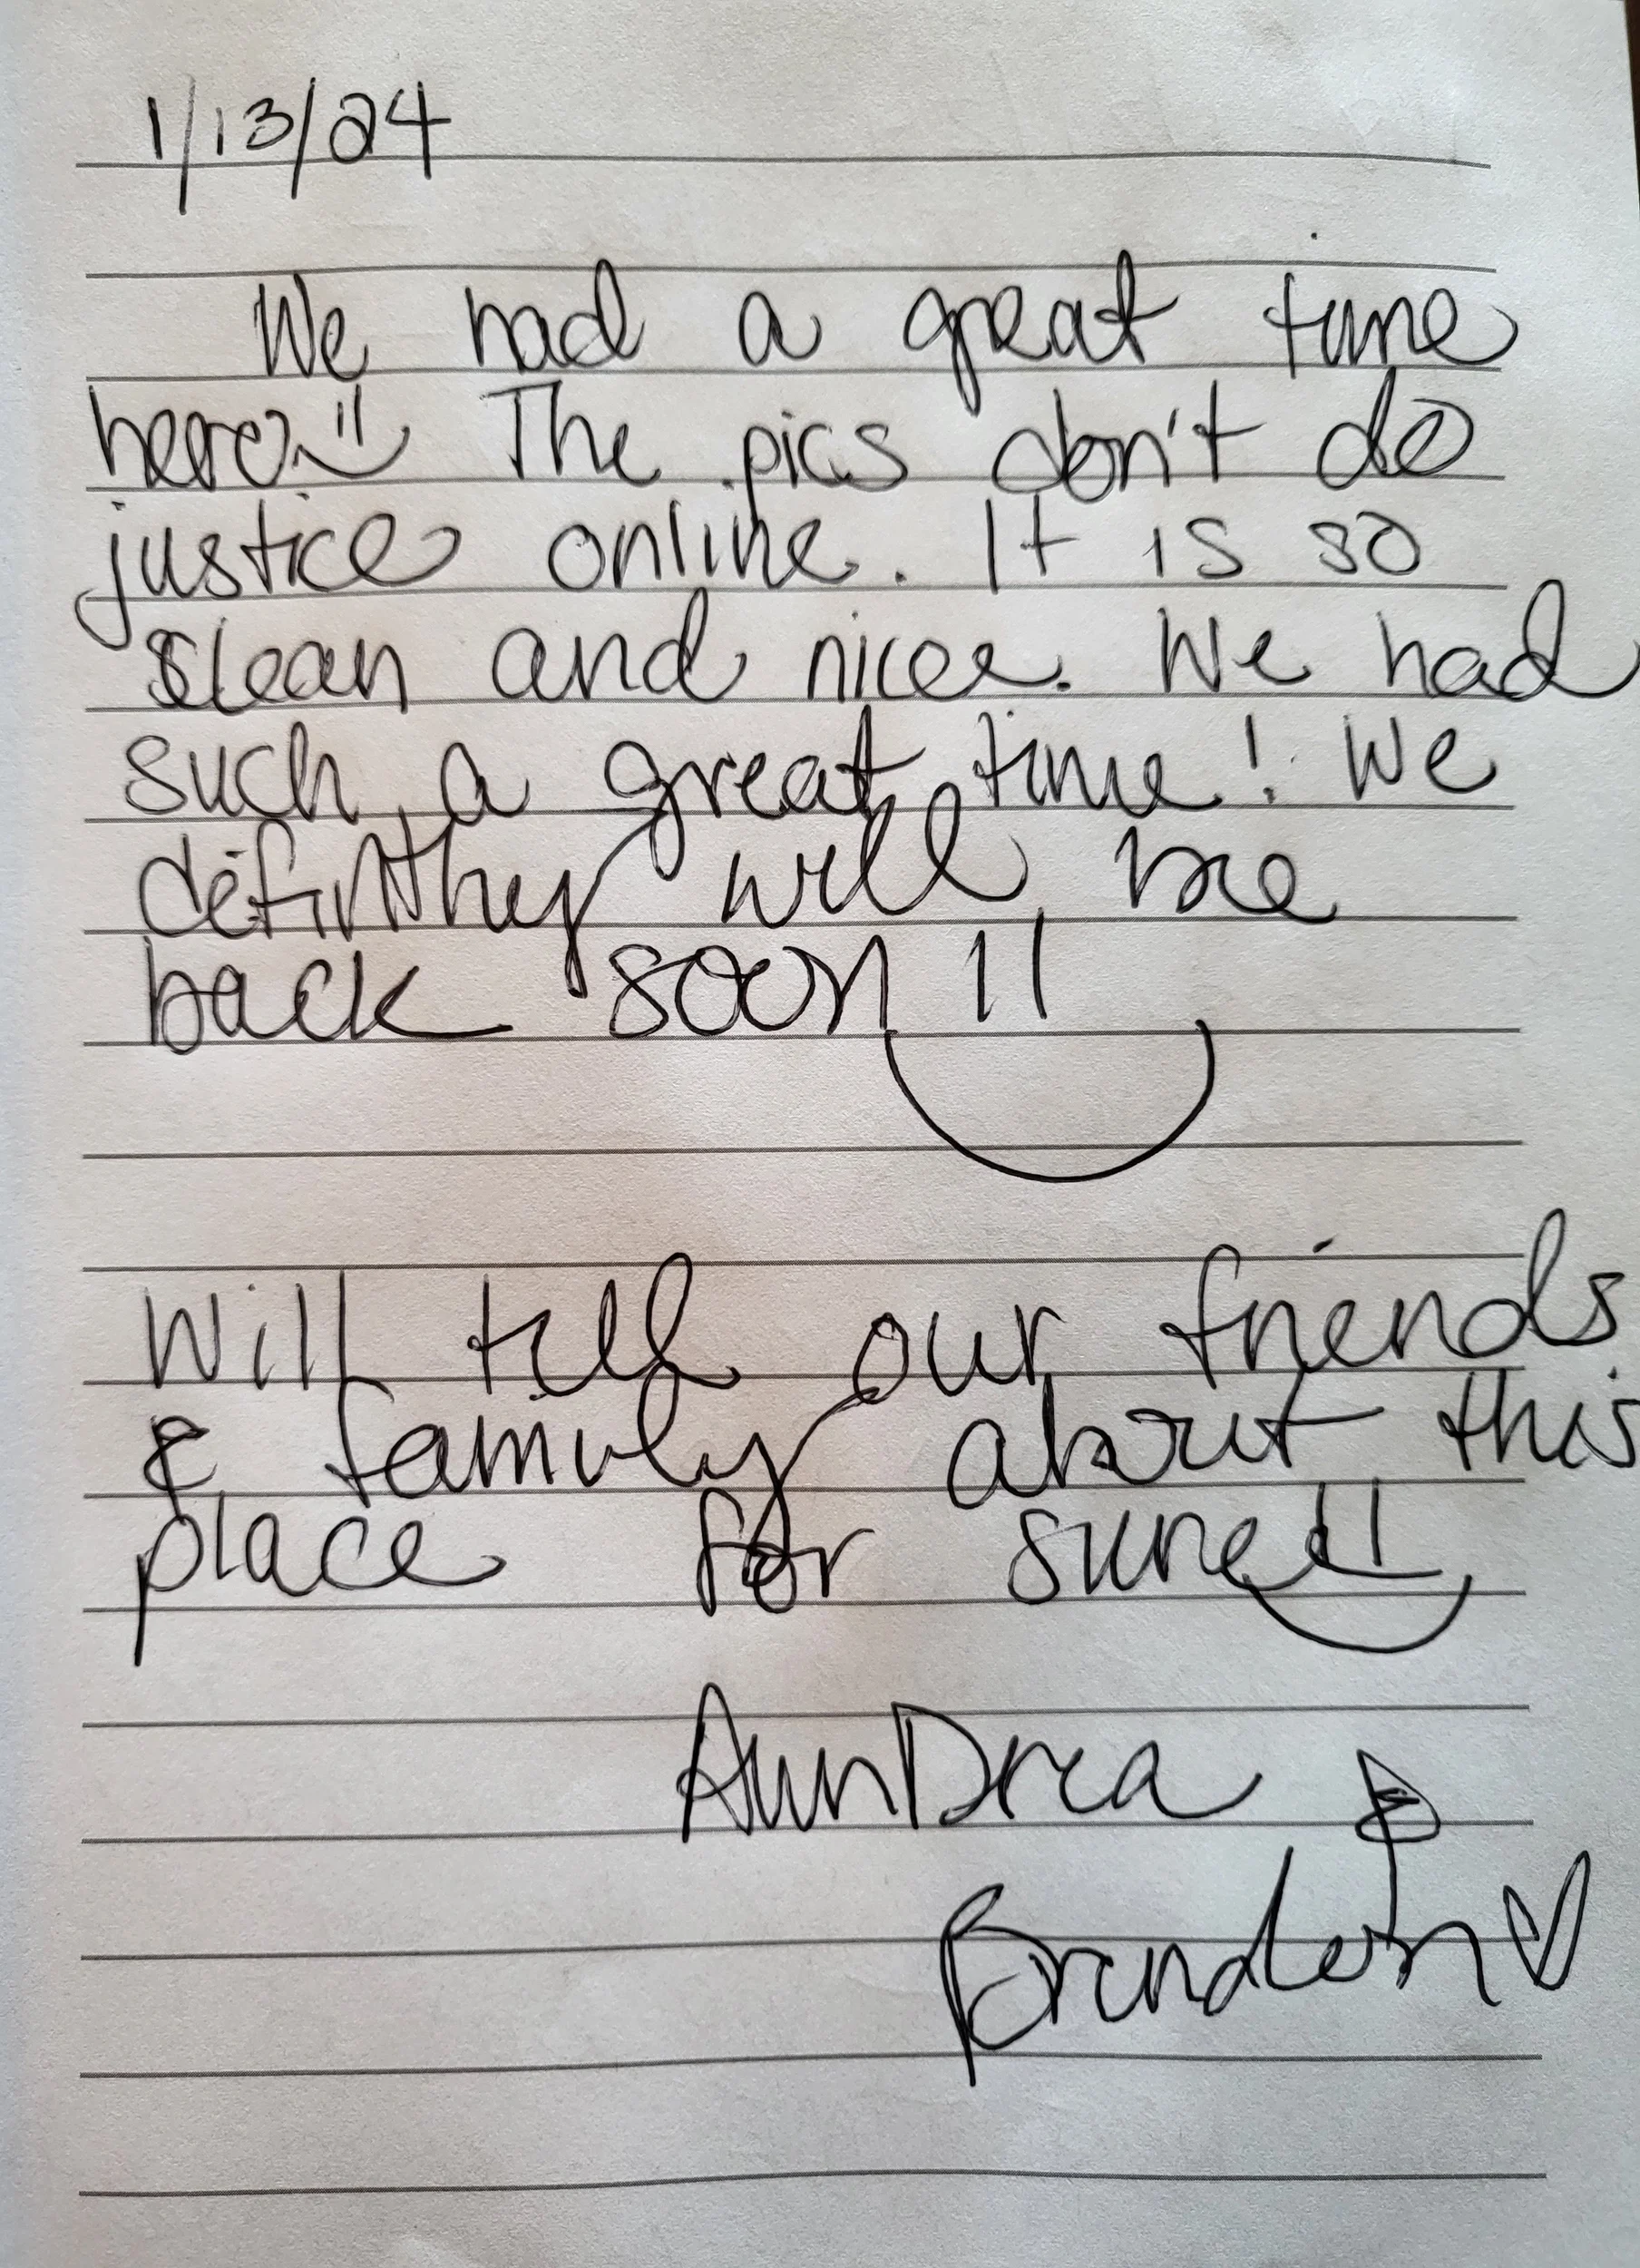 1/13/24
We had a great time
here. The pics don't do
justice online. It is so
clean and nice. We had
such a great time! We
definitley will be
back soon!!
Will tell our friends
& family about this
place for sure!!
AunDrea &
Brandon ♡